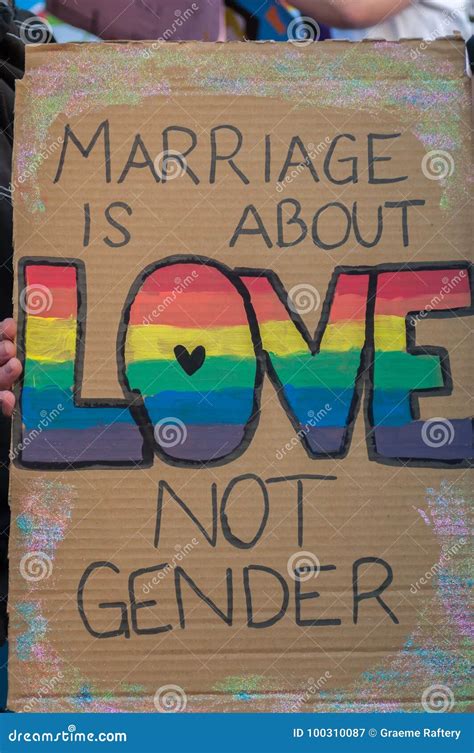 MARRIAGE
IS ABOUT
LOVE
NOT
GENDER
dreamstime.com
ID 100310087 © Graeme Raftery